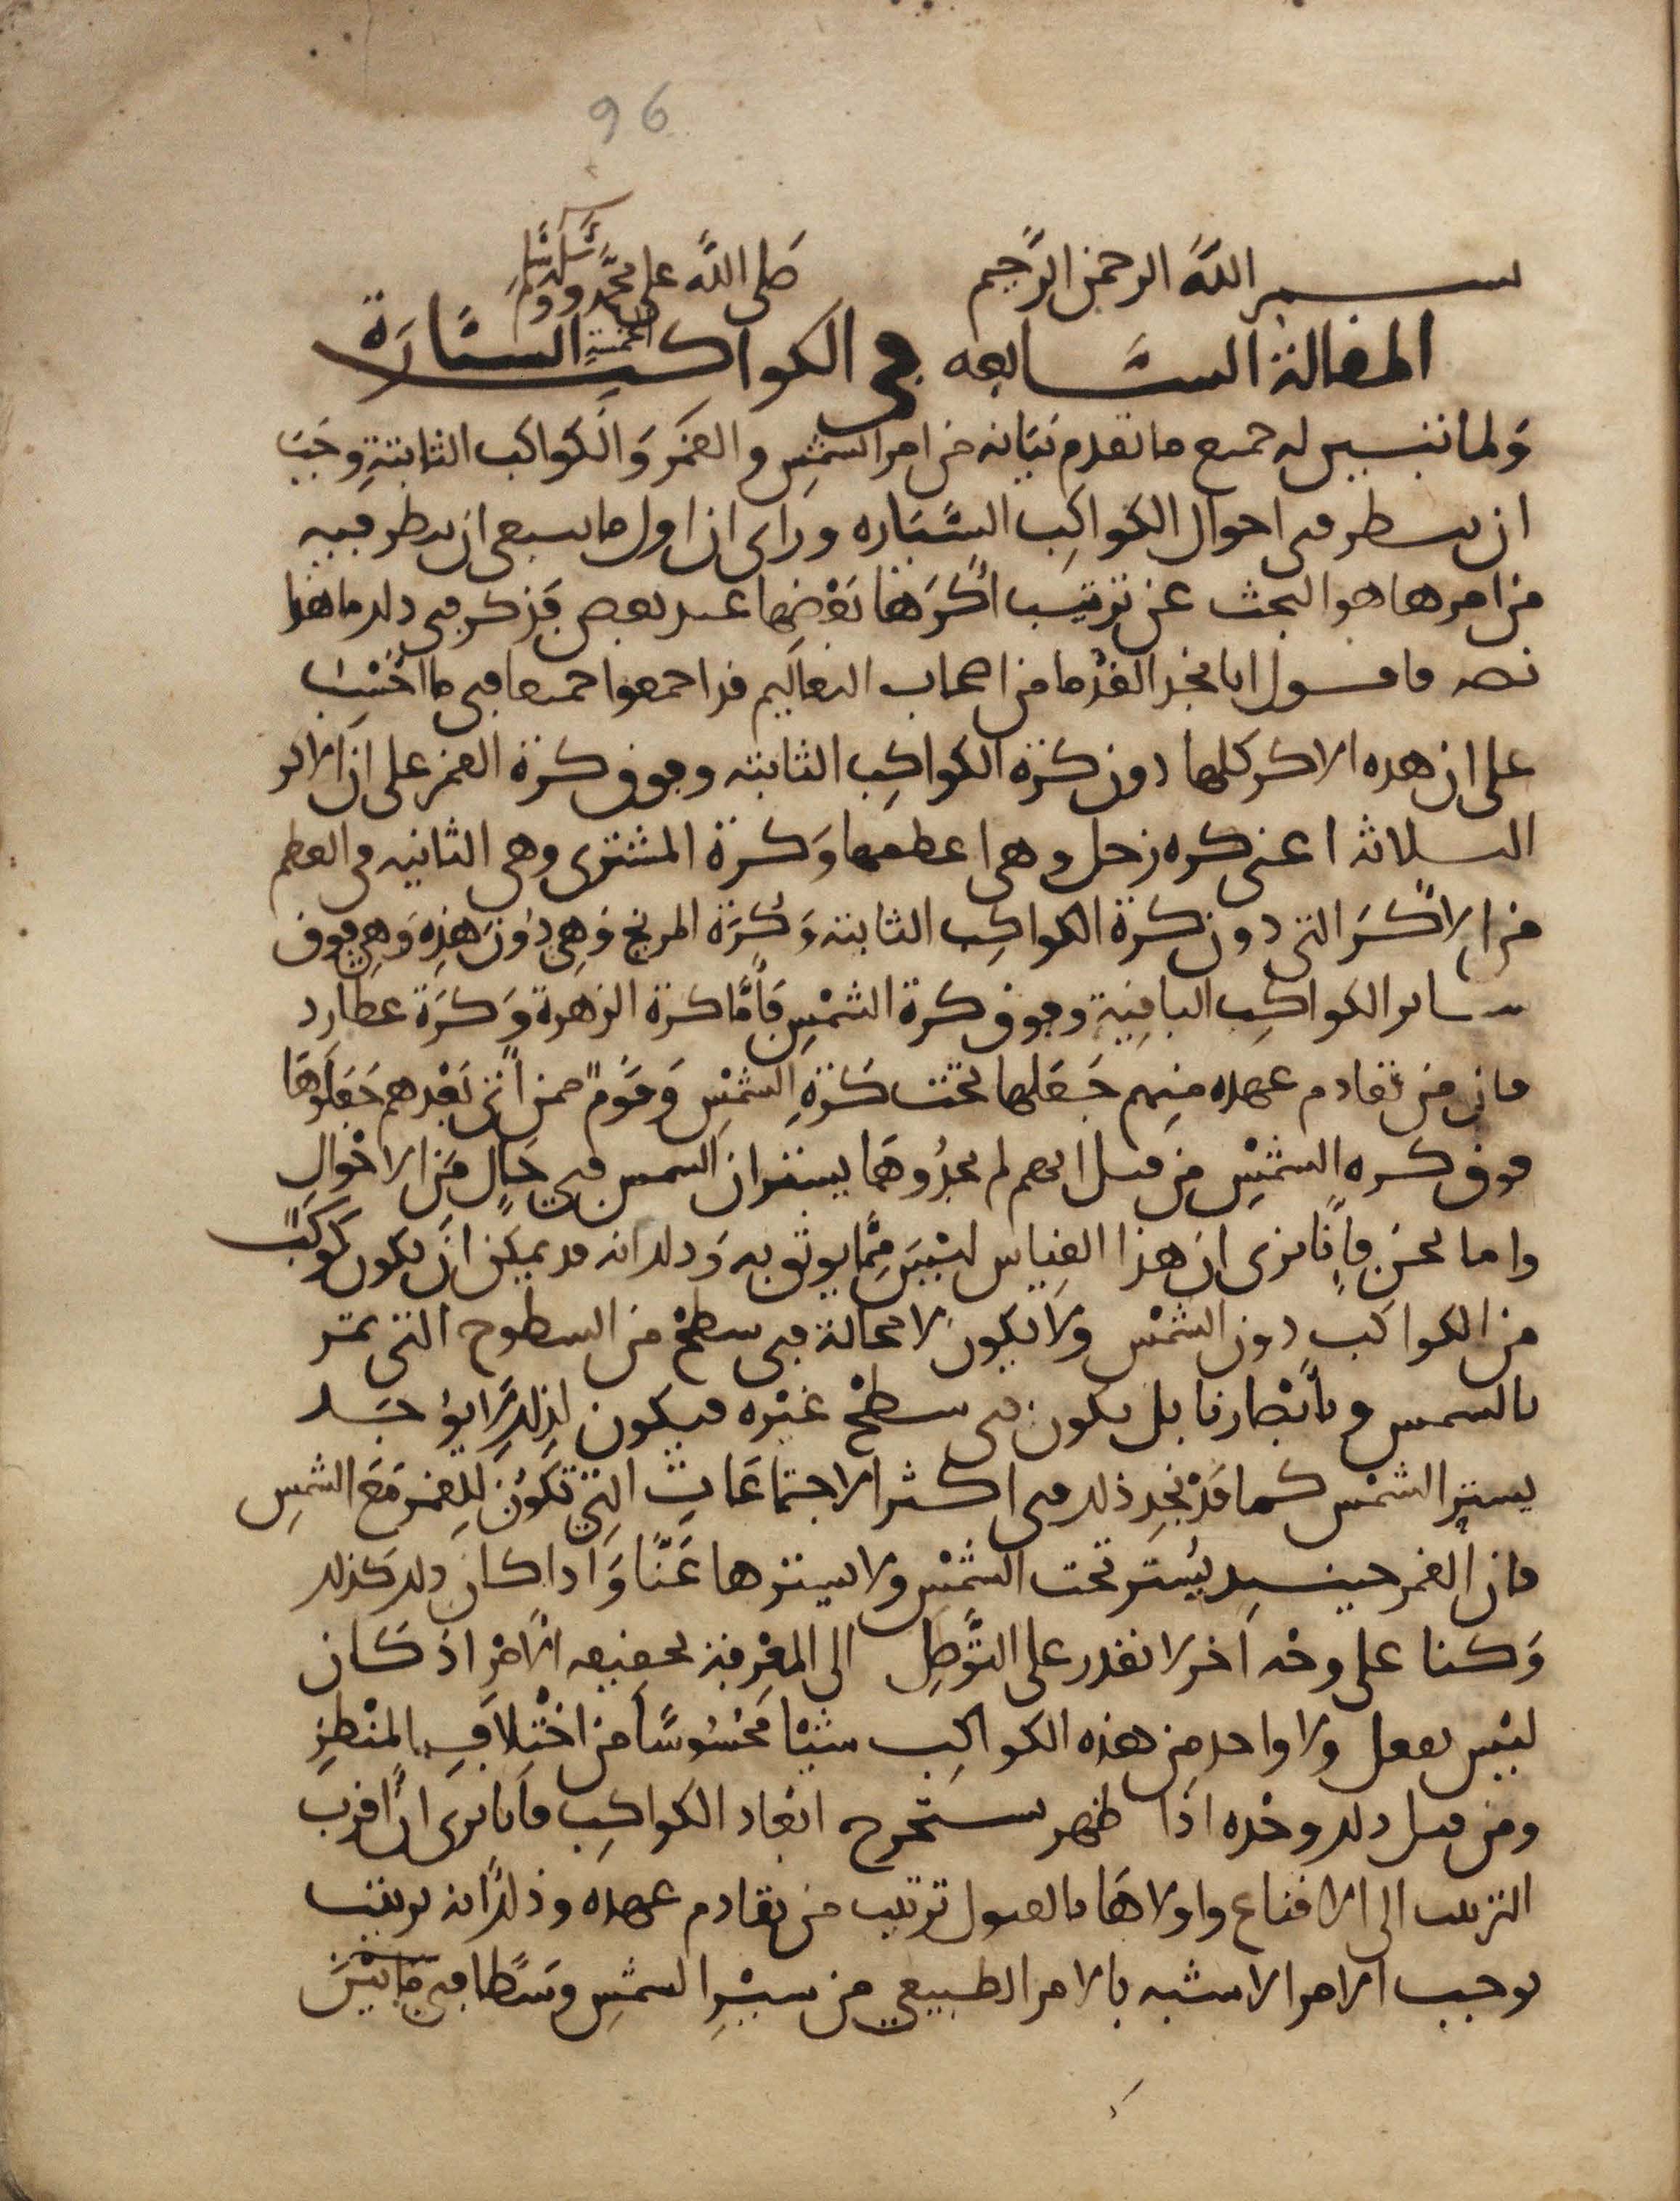 96
بسم الله الرحمن الرحيم صلى الله على محمد وسلم
المقالة السابعه في الكواكب الخمسة السيارة
وَلما تبين له جميع ما تقدم بَيَانه من امر الشمْسِ والقمَر وَالكَواكب الثابتةِ وجَبَ
ان ينظر في احوال الكواكِب السَّيَاره وراى ان اول ما ينبغي ان ينظر فيه
من امرها هو البحث عن ترتيب أكَرِهَا بَعْضِها عند بعض فذكر في ذلك ما هذا
نصه فاقول انا نجد القُدما من اصحاب التعاليم قد اجمعوا جميعا في ما احْسِبُ
على ان هذه الاكر كلها دون كرَة الكواكِب الثابته وفوق كرَة القمَر على ان الاكر
الثلاثه اعني كره زحل وهي اعظمها وَكرة المشتري وهي الثانيه في العظم
من الأكَر التي دون كرة الكواكِب الثابته وَكُرَة المريخ وَهِي دُونَ هَذِه وَهِي فوق
سائر الكواكِب الباقِيَة وفوق كرة الشمْسِ فأمَّا كرَة الزهرة وَكرَة عطارد
فان من تقادم عهده منهم جَعَلها تحت كَرَةِ الشمْسِ وَقوْمٌ ممن أتى بَعْدهم جَعَلوهَا
فوق كره الشمْسِ من قبل انهم لم يجدُوهَما يستران الشمس في حَالٍ مِنَ الاحْوالِ
واما نحن فإنا نرى ان هذا القِياس ليْسَ مِمَّا يوثق به وَذلك انه قد يمكن ان يكون كَوكَبٌ
من الكواكب دون الشمْس ولا يكون لا محالة في سطحْ من السطوح التي تمر
بالشمس وبأبْصَارنا بل يكون في سطحْ غيْره فيكون لِذلِكَ لا يوُجَد
يستر الشمْس كما قدْ نجِد ذلك في اكثر الاجتماعَاتِ التِي تكُونُ لِلقمَر مَعَ الشمسِ
فان القمر حينئذ يُستر تحت الشمْسِ ولا يسترها عَنَّا وَاذا كان ذلك كذلك
وَكنا على وجْه آخر لا نقدر على التَّوَصِل الى المعْرِفة بحقيقه الأمْر اذ كَان
ليْسَ يفعل ولا واحد من هذه الكواكِب شيْئا مَحْسُوسًا من اخْتلافِ المنْظرِ
ومن قبل ذلك وحْده اذا ظهر يستخرج ابْعَاد الكواكِب فأنا نرى انَّ اقرَب
الترتيب الى الاقناع واولاهَا بالقبول ترتيب من تقادم عهده وذلك انه ترتيب
يوجب الامر الاشبه بالامر الطبيعي من سيْرِ الشمْسِ وسَطا في مَا بَيْنَ